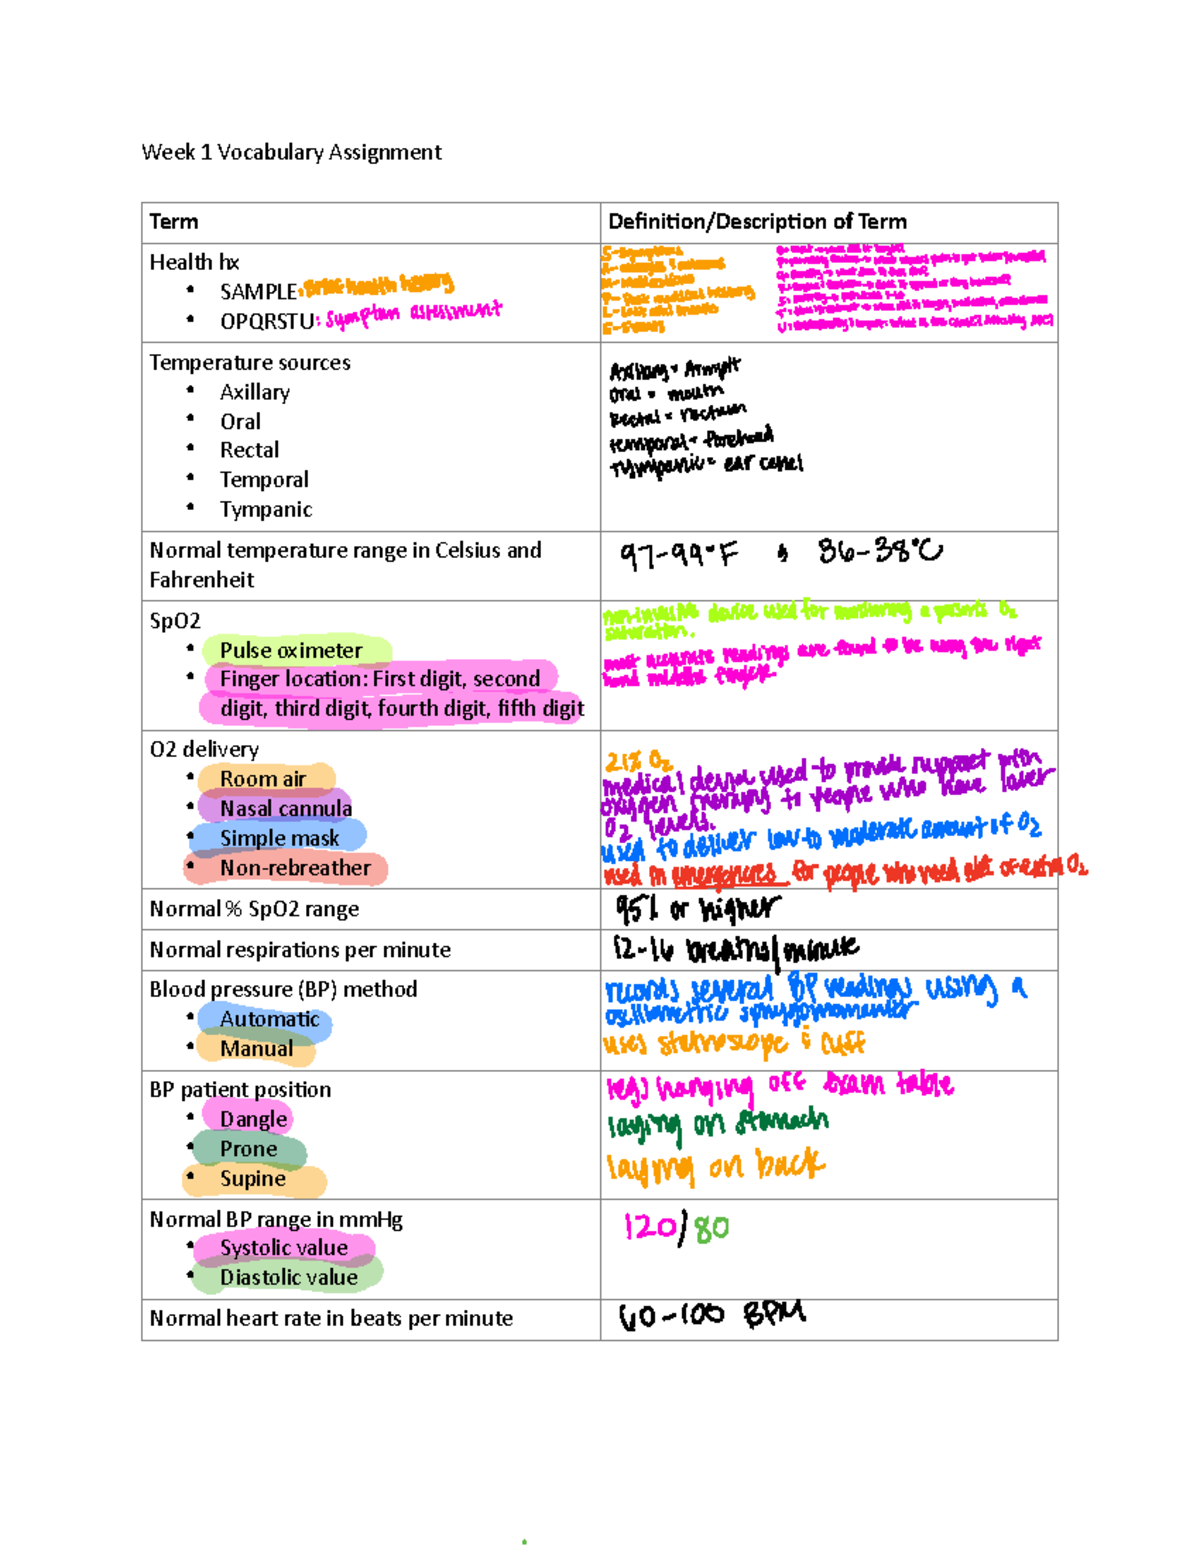 Week 1 Vocabulary Assignment
Term
Definition/Description of Term
Health hx
• SAMPLE: Brief health history
• OPQRSTU: symptom assessment
S-symptoms
A-allergies
M-medications
P-Past medical history
L-Last oral intake
E-Events
Temperature sources
• Axillary
• Oral
• Rectal
• Temporal
• Tympanic
Axillary= Armpit
Oral = mouth
Rectal = rectum
temporal= forehead
tympanic= ear canel
Normal temperature range in Celsius and
Fahrenheit
97-99°F & 36-38°C
SpO2
• Pulse oximeter
• Finger location: First digit, second
digit, third digit, fourth digit, fifth digit
non-invasive device used for monitoring a patients O2
saturation.
most accurate readings are found to be using the right
hand middle finger
O2 delivery
• Room air
• Nasal cannula
• Simple mask
• Non-rebreather
21% O2
medical device used to provide support with
oxygen therapy to people who have lower
O2 levels.
used to deliver low to moderate amount of O2
used in emergencies for people who need alot of extra O2
Normal % SpO2 range
95% or higher
Normal respirations per minute
12-16 breaths/minute
Blood pressure (BP) method
• Automatic
• Manual
records several BP readings using a
oscillometric sphygmomanometer
uses stethoscope & cuff
BP patient position
• Dangle
• Prone
• Supine
legs hanging off exam table
laying on stomach
laying on back
Normal BP range in mmHg
• Systolic value
• Diastolic value
120/80
Normal heart rate in beats per minute
60-100 BPM